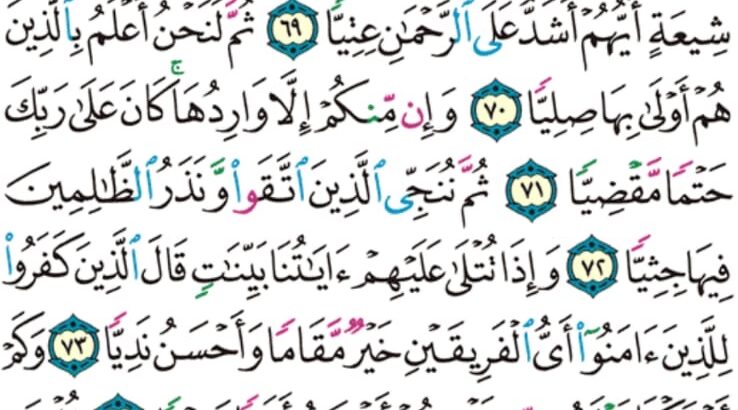 شِيعَةٍ أَيُّهُمْ أَشَدُّ عَلَى ٱلرَّحْمَٰنِ عِتِيًّا ٦٩ ثُمَّ لَنَحْنُ أَعْلَمُ بِٱلَّذِينَ
هُمْ أَوْلَىٰ بِهَا صِلِيًّا ٧٠ وَإِن مِّنكُمْ إِلَّا وَارِدُهَا ۚ كَانَ عَلَىٰ رَبِّكَ
حَتْمًا مَّقْضِيًّا ٧١ ثُمَّ نُنَجِّى ٱلَّذِينَ ٱتَّقَوا۟ وَّنَذَرُ ٱلظَّٰلِمِينَ
فِيهَا جِثِيًّا ٧٢ وَإِذَا تُتْلَىٰ عَلَيْهِمْ ءَايَٰتُنَا بَيِّنَٰتٍ قَالَ ٱلَّذِينَ كَفَرُوا۟
لِلَّذِينَ ءَامَنُوٓا۟ أَىُّ ٱلْفَرِيقَيْنِ خَيْرٌ مَّقَامًا وَأَحْسَنُ نَدِيًّا ٧٣ وَكَمْ